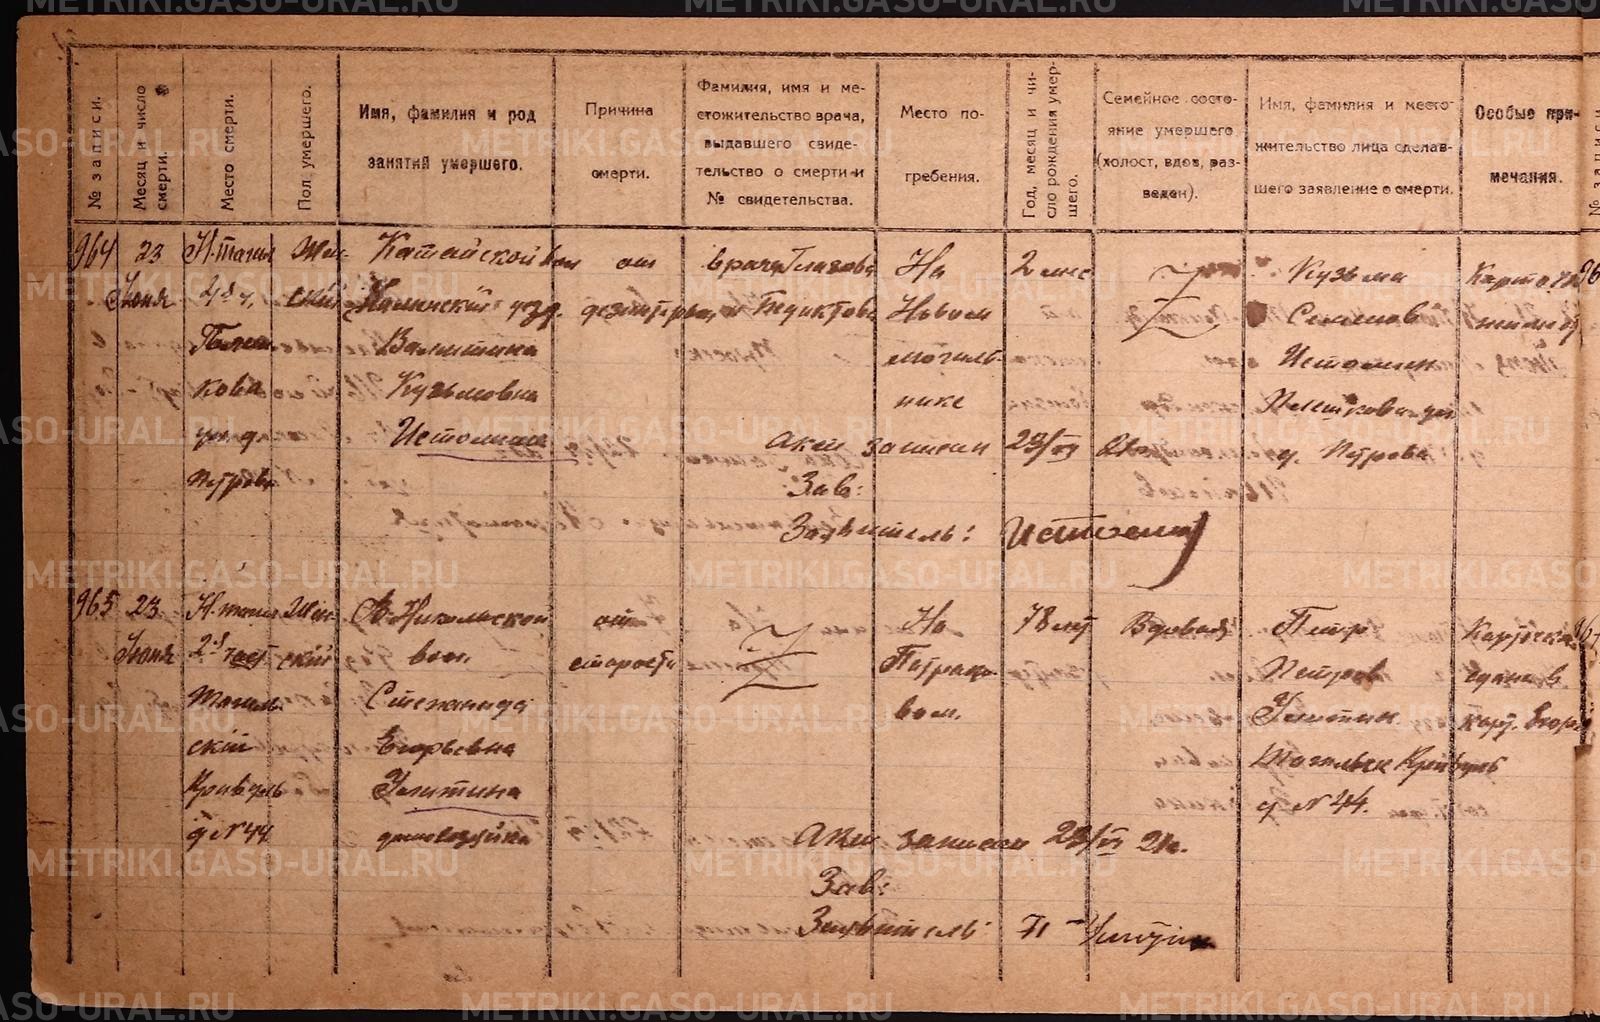 № записи.
Месяц и число смерти.
Место смерти.
Пол умершего.
Имя, фамилия и род
занятий умершего.
Причина
смерти.
Фамилия, имя и ме-
стожительство врача,
выдавшего свиде-
тельство о смерти и
№ свидетельства.
Место по-
гребения.
Год, месяц и чи-
сло рождения умер-
шего.
Семейное состо-
яние умершего
(холост, вдов, раз-
веден).
Имя, фамилия и место-
жительство лица сделав-
шего заявление о смерти.
Особые при-
мечания.
964
23
Июня
Н. Тагил
2й ч.
ул. д.
Петрова
Жен-
ский
Катайской вол
уезд.
Валентина
Кузьмовна
Истомина
от
дезинтерии
врача Глазова
и
На
Новом
могиль-
нике
2 мес
Кузьма
Семенов
Истомин
д. Петрова
Акт записан 23/VI 21г.
Зав:
Заявитель: Истомин
965
23
Июня
Н. Тагил
2й част
Тагиль-
ский
Криуль
д № 44
Жен-
ский
В. Никольской
вол.
Степанида
Егоровна
Улитина
домохозяйка
от
старости
На
вом.
78 лет
Вдова
Петр
Петров
Улитин
Тагильск Криуль
д № 44.
Карточка
сдана в
карт. бюро
Акт записан 23/VI 21г.
Зав:
Заявитель: П Улитин
METRIKI.GASO-URAL.RU